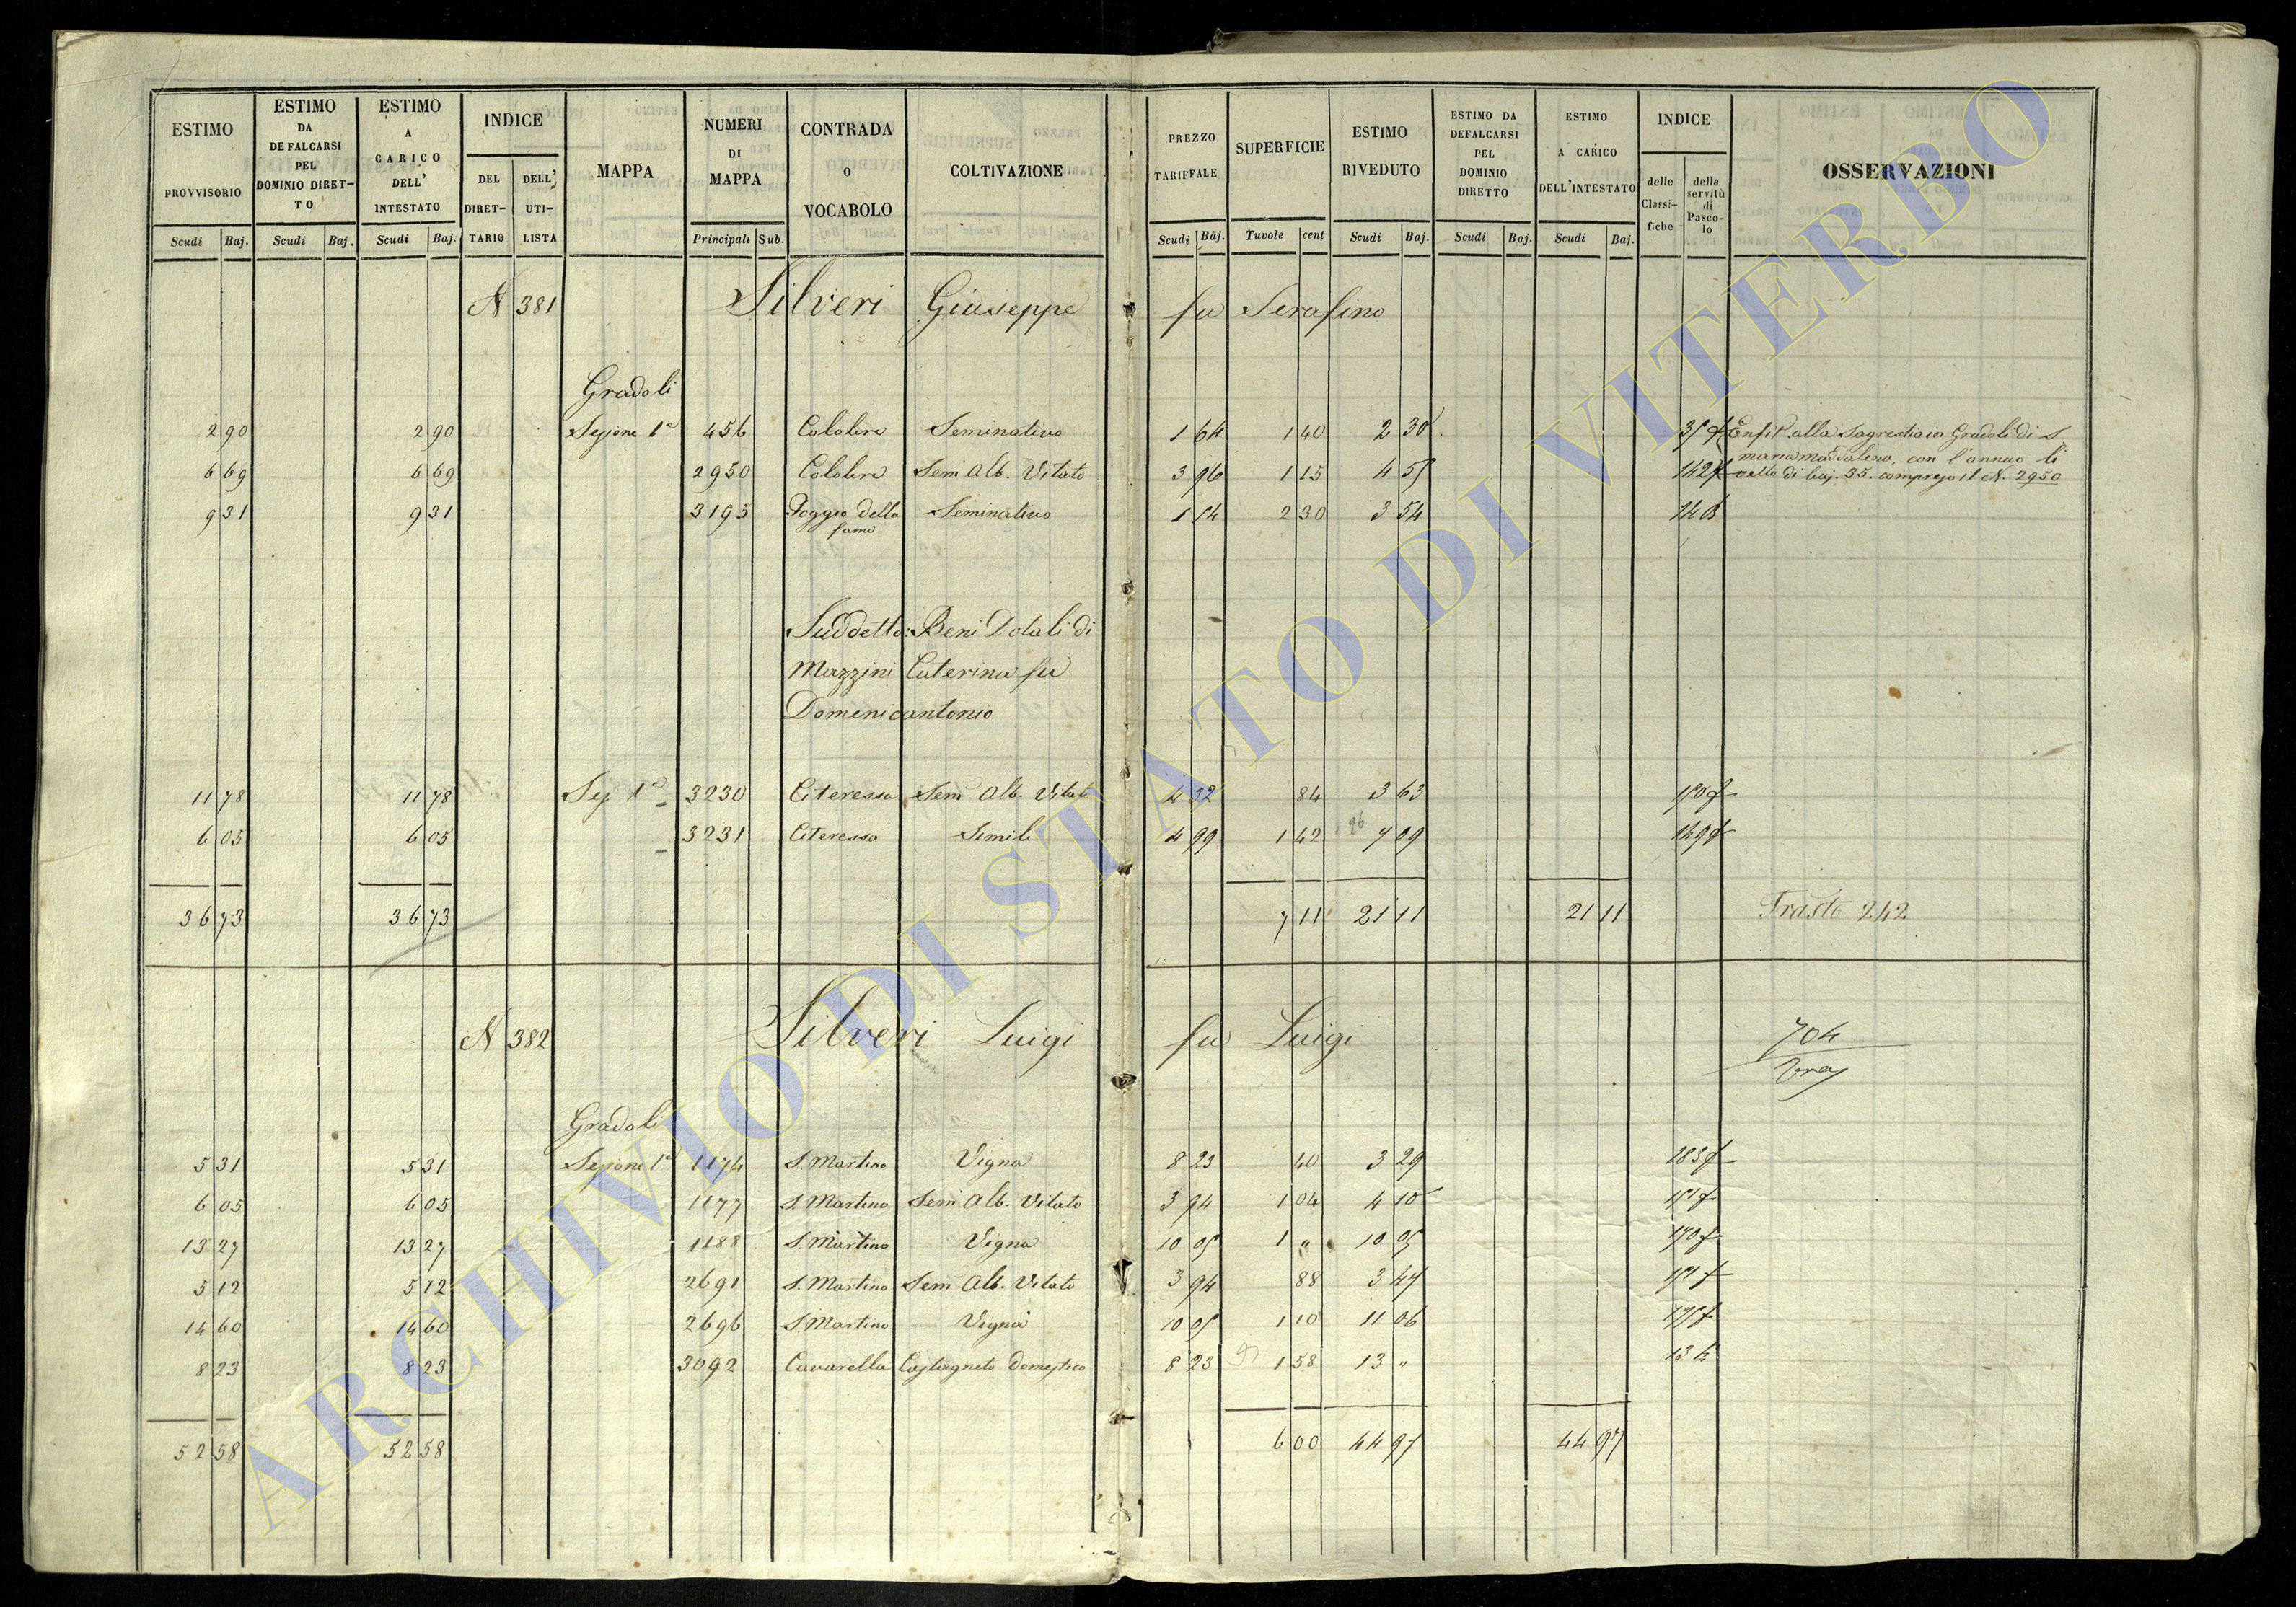 ESTIMO PROVVISORIO Scudi Baj.
ESTIMO DA DEFALCARSI PEL DOMINIO DIRET- TO Scudi Baj.
ESTIMO A CARICO DELL' INTESTATO Scudi Baj.
INDICE DEL DIRET- TARIO DELL' UTI- LISTA
MAPPA
NUMERI DI MAPPA Principali Sub.
CONTRADA O VOCABOLO
COLTIVAZIONE
PREZZO TARIFFALE Scudi Baj.
SUPERFICIE Tavole cent
ESTIMO RIVEDUTO Scudi Baj.
ESTIMO DA DEFALCARSI PEL DOMINIO DIRETTO Scudi Baj.
ESTIMO A CARICO DELL'INTESTATO Scudi Baj.
INDICE delle Classi- fiche della servitù di Pasco- lo
OSSERVAZIONI
N 381 Silveri Giuseppe fu Serafino
Gradoli
2 90 2 90 Sezione 1a 456 Seminativo 1 64 1 40 2 30 Enfit. alla Sagrestia in Gradoli di S.
6 69 6 69 2950 Sem Alb. Vitato 3 96 1 15 4 55 142 maria Maddalena, con l'annuo li
vello di baj. 35. compreso il N. 2950
9 31 9 31 3195 Poggio della fame Seminativo 1 54 2 30 3 54
Suddetto: Beni Dotali di
Mazzini Caterina fu
Domenicantonio
11 78 11 78 Sez 1a 3230 Citeresso Sem Alb. Vitato 4 32 84 3 63
6 05 6 05 3231 Citeresso Simile 4 99 1 42 7 09
36 73 36 73 7 11 21 11 21 11 Trasto 242
N 382 Silveri Luigi fu Luigi 704
Tras
Gradoli
5 31 5 31 Sezione 1a 1174 S. Martino Vigna 8 23 40 3 29
6 05 6 05 1177 S. Martino Sem Alb. Vitato 3 94 1 04 4 10
13 27 13 27 1188 S. Martino Vigna 10 05 1 " 10 05
5 12 5 12 2691 S. Martino Sem Alb. Vitato 3 94 88 3 47
14 60 14 60 2696 S. Martino Vigna 10 05 1 10 11 06
8 23 8 23 3092 Cavarella Castagneto Domestico 8 23 1 58 13 "
52 58 52 58 6 00 44 97 44 97
ARCHIVIO DI STATO DI VITERBO